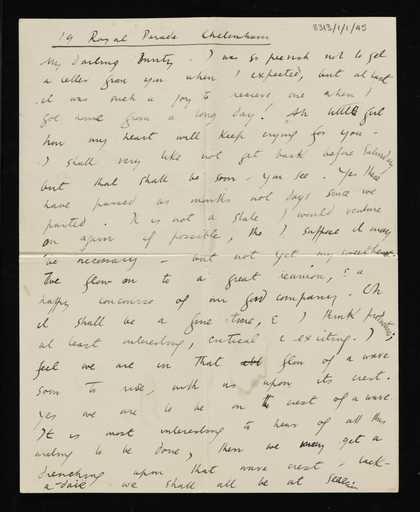 8313/1/1/45
19 Royal Parade Cheltenham
My Darling Bunty. I was so peevish not to get
a letter from you when I expected, but at last
it was such a joy to receive one when I
got home from a long day! Ah little girl
how my heart will keep crying for you -
I shall very like not get back before Saturday
but that shall be soon - you see. Yes these
have passed as months not days since we
parted. It is not a state I would venture
on again if possible, tho I suppose it may
be necessary - but not yet my sweetheart.
I've flown on to a great reunion, & a
happy concourse of our good company. Oh
it shall be a fine time, & I think productive,
at least interesting, critical & exciting. I
feel we are in that flow of a wave
soon to ride, with us upon its crest.
Yes we are to be on the crest of a wave.
It is most interesting to hear of all this
writing to be done, then we may get a
drenching upon that wave crest - lack-
a-daik we shall all be at sea.